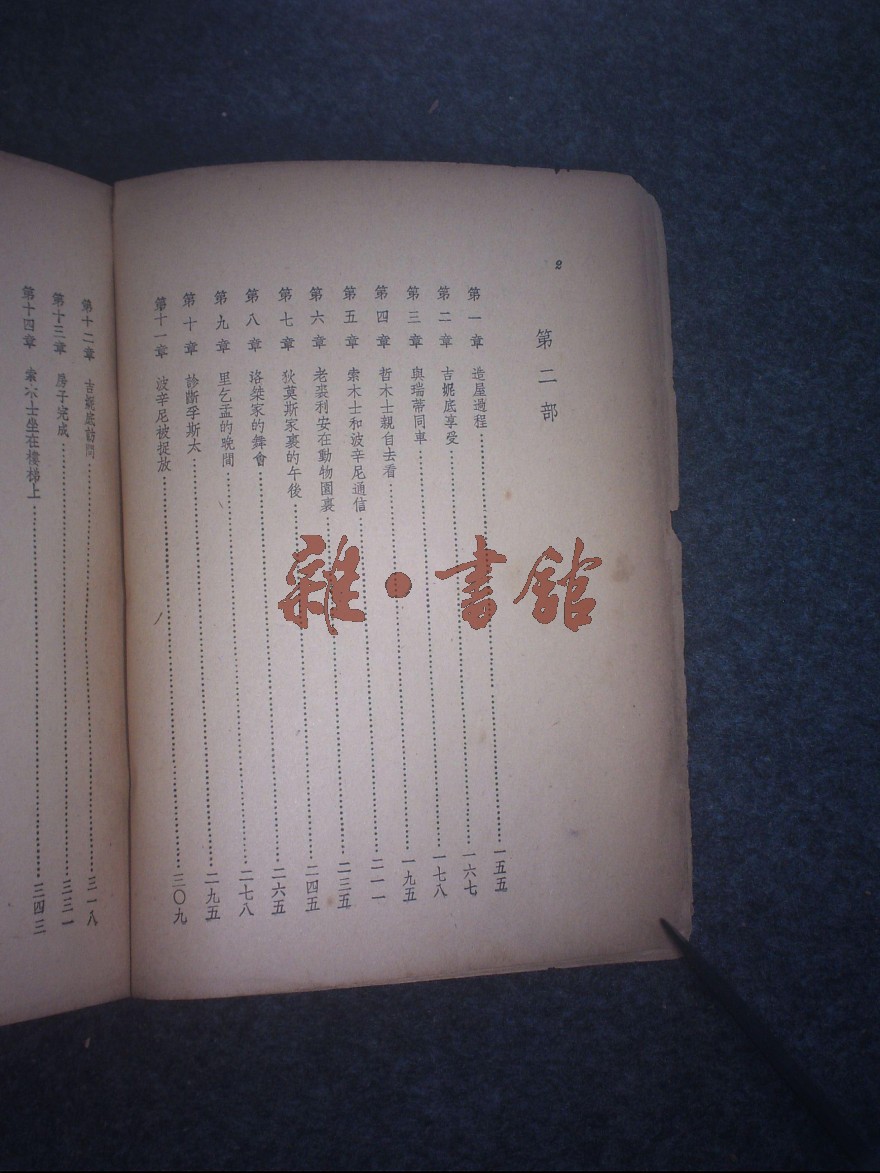 2
第二部
第一章　造屋過程……一五五
第二章　吉妮底享受……一六七
第三章　與瑞蒂同車……一七八
第四章　哲木士親自去看……一九五
第五章　索木士和波辛尼通信……二一一
第六章　老裘利安在動物園裏……二三五
第七章　狄莫斯家裏的午後……二四五
第八章　洛桀家的舞會……二六五
第九章　里乞孟的晚間……二七八
第十章　診斷孚斯太……二九五
第十一章　波辛尼被捉放……三〇九
第十二章　吉妮底訪問……三一八
第十三章　房子完成……三三一
第十四章　索木士坐在樓梯上……三四三
雜·書館